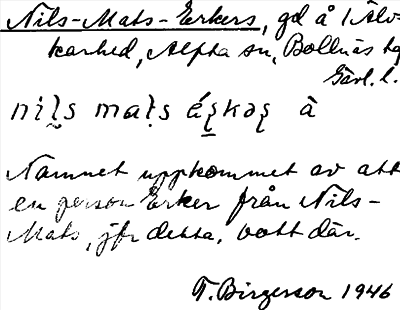 Nils-Mats-Erkers, gd å 1 Älv-
karhed, Alfta sn, Bollnäs tg
Gävl. l.
nils mats á à
Namnet uppkommet av att
en person Erker från Nils-
Mats, jfr detta, bott där.
T. Birgerson 1946